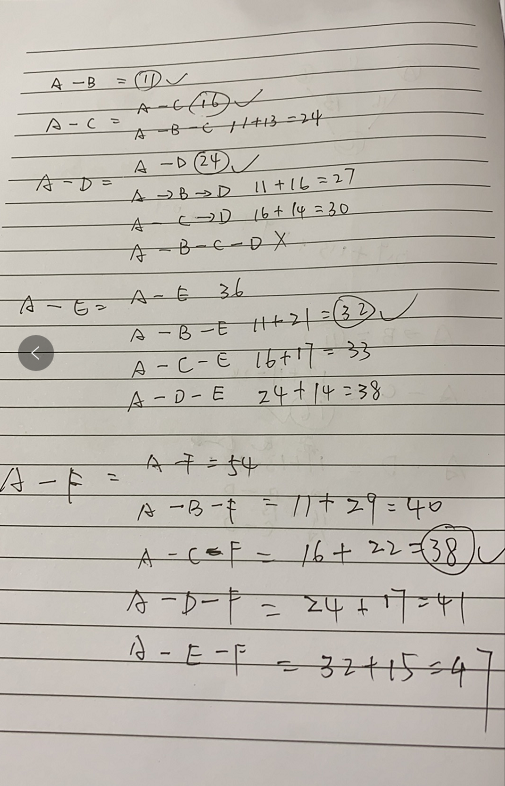 A-B = 11 ✓
A-C = A-C 16 ✓
A-B-C 11+13=24
A-D = A-D 24 ✓
A→B→D 11+16=27
A-C→D 16+14=30
A-B-C-D X
A-E = A-E 36
A-B-E 11+21=32 ✓
A-C-E 16+17=33
A-D-E 24+14=38
A-F = A-F=54
A-B-F = 11+29=40
A-C-F = 16+22=38 ✓
A-D-F = 24+17=41
A-E-F = 32+15=47